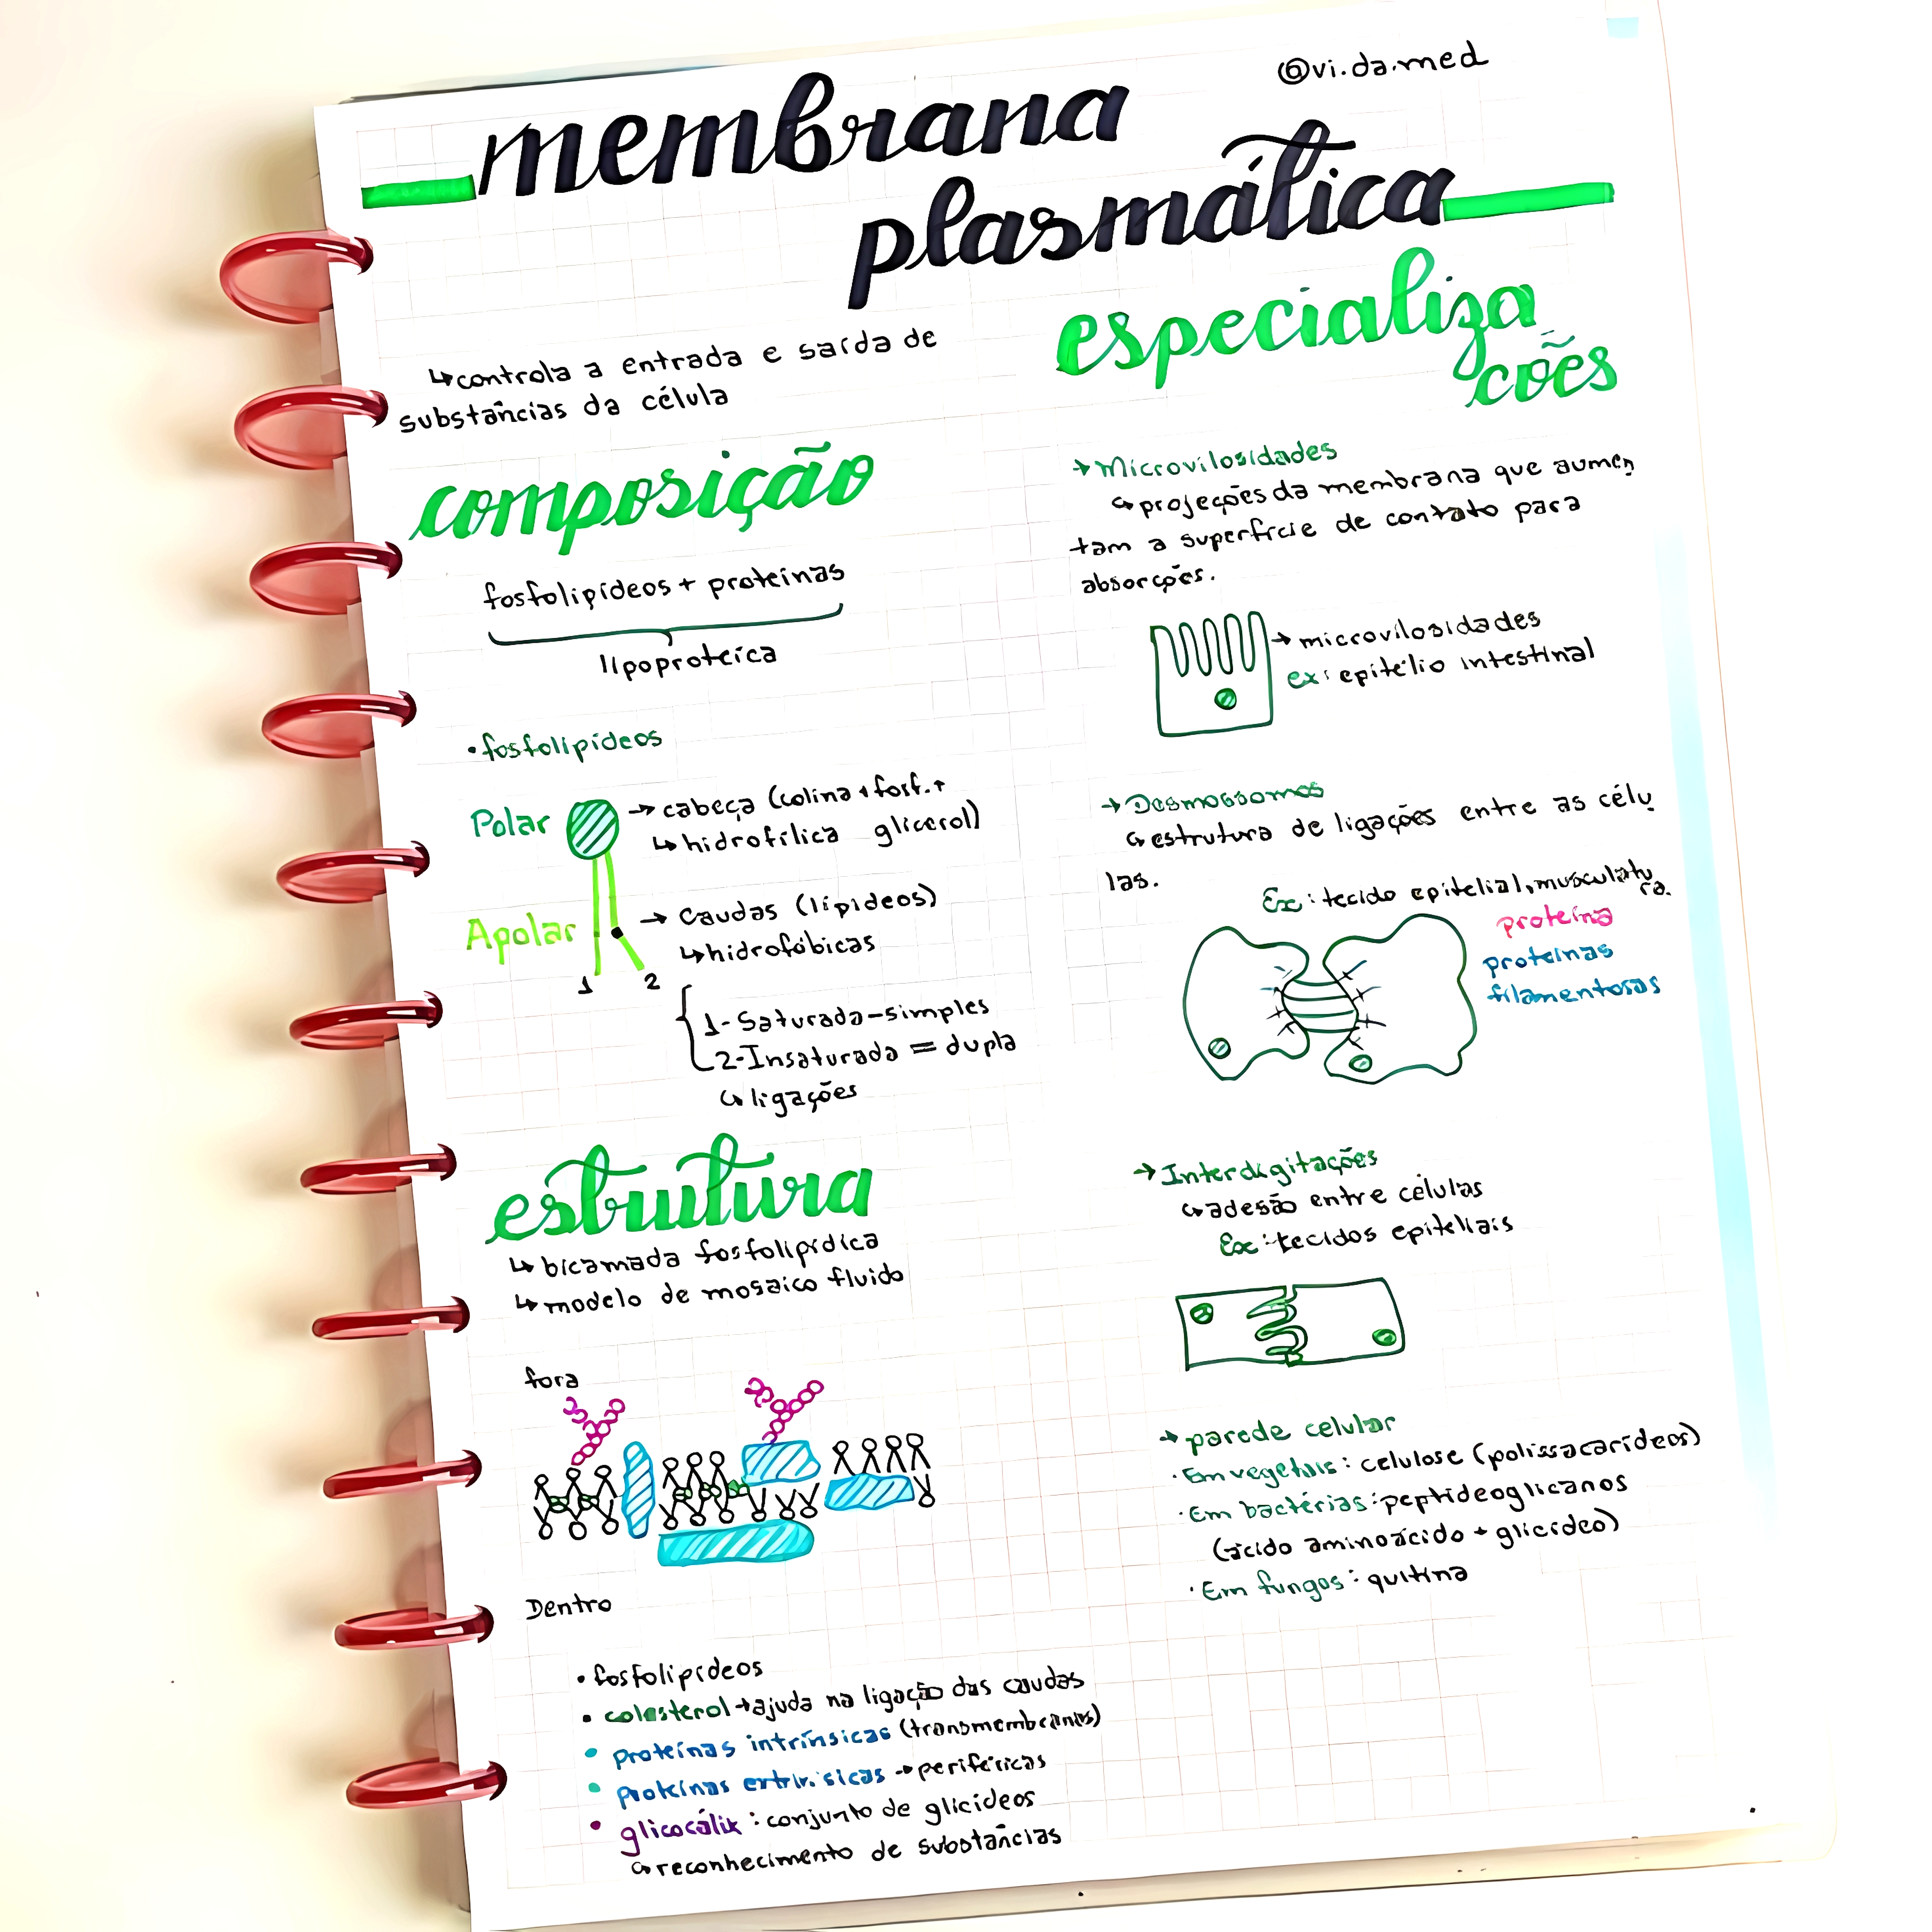 @vi.da.med
membrana
plasmática
↳controla a entrada e saída de
substâncias da célula
composição
fosfolipídeos + proteínas
lipoproteica
•fosfolipídeos
Polar
→ cabeça (colina + fosf. +
↳hidrofílica glicerol)
Apolar
→ Caudas (lipídeos)
↳hidrofóbicas
1 2
1- Saturada - simples
2- Insaturada = dupla
↳ligações
estrutura
↳ bicamada fosfolipídica
↳ modelo de mosaico fluido
fora
Dentro
• fosfolipídeos
• colesterol → ajuda na ligação das caudas
• proteínas intrínsicas (transmembranas)
• proteínas extrínsicas → periféricas
• glicocálix : conjunto de glicídeos
↳reconhecimento de substâncias
especializa
ções
→ Microvilosidades
↳projeções da membrana que aumen
tam a superfície de contato para
absorções.
→ microvilosidades
ex: epitélio intestinal
→ Desmossomos
↳estrutura de ligações entre as célu
las.
Ex: tecido epitelial, musculatu
ra.
proteína
proteínas
filamentosas
→ Interdigitações
↳adesão entre células
Ex: tecidos epiteliais
→ parede celular
• Em vegetais: celulose (polissacarídeos)
• Em bactérias: peptideoglicanos
(ácido aminoácido + glicídeo)
• Em fungos: quitina